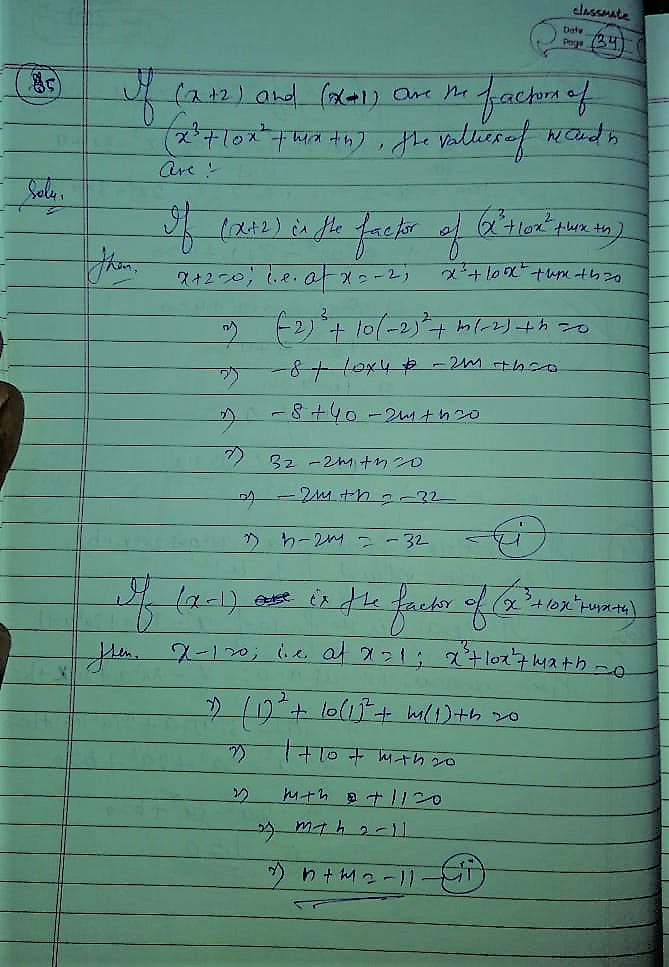 classmate
Date
Page 34
85 If (x+2) and (x-1) are the factors of
(x³+10x²+mx+n), the values of m and n
are :-
Soln.
If (x+2) is the factor of (x³+10x²+mx+n)
then. x+2=0; i.e. at x=-2; x³+10x²+mx+n=0
⇒ (-2)³ + 10(-2)² + m(-2) + n = 0
⇒ -8 + 10x4 - 2m + n = 0
⇒ -8 + 40 - 2m + n = 0
⇒ 32 - 2m + n = 0
⇒ -2m + n = -32
⇒ n - 2m = -32 — i
If (x-1) is the factor of (x³+10x²+mx+n)
then. x-1=0; i.e. at x=1; x³+10x²+mx+n=0
⇒ (1)² + 10(1)² + m(1) + n = 0
⇒ 1 + 10 + m + n = 0
⇒ m + n + 11 = 0
⇒ m + n = -11
⇒ n + m = -11 — ii